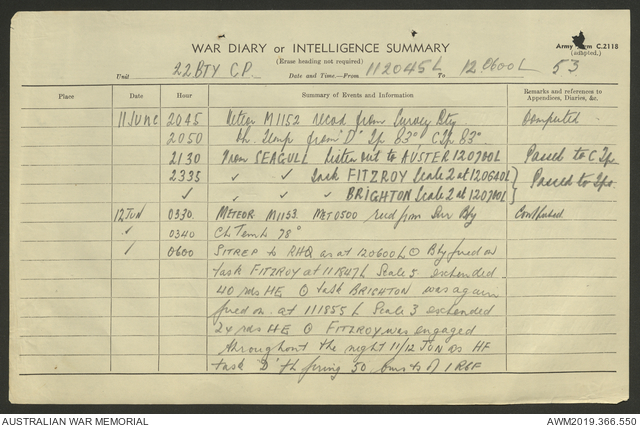 WAR DIARY or INTELLIGENCE SUMMARY
Army Form C.2118
(Erase heading not required)
(adapted.)
Unit 22 BTY C.P. Date and Time.—From 112045L To 120600L 53
Place Date Hour Summary of Events and Information Remarks and references to Appendices, Diaries, &c.
11 June 2045 Meteor M1152 recd from Survey Bty Computed
2050 Ch Temp from 'D' Tp 83° C Tp 83°
2130 From SEAGULL Listen out to AUSTER 120700L Passed to C Tp
2335 " " Task FITZROY Scale 2 at 120640L } Passed to Tps
" " " BRIGHTON Scale 2 at 120700L
12 JUN 0330 METEOR M1153 MET0500 recd from Sur Bty Computed
" 0340 Ch Temp 78°
" 0600 SITREP to RHQ as at 120600L ⊙ Bty fired on
task FITZROY at 111847L Scale 5 expended
40 rds HE ⊙ task BRIGHTON was again
fired on at 111855L Scale 3 expended
24 rds HE ⊙ FITZROY was engaged
throughout the night 11/12 JUN as HF
task 'D' Tp firing 50 bursts of 1 RGF
AUSTRALIAN WAR MEMORIAL
AWM2019.366.550